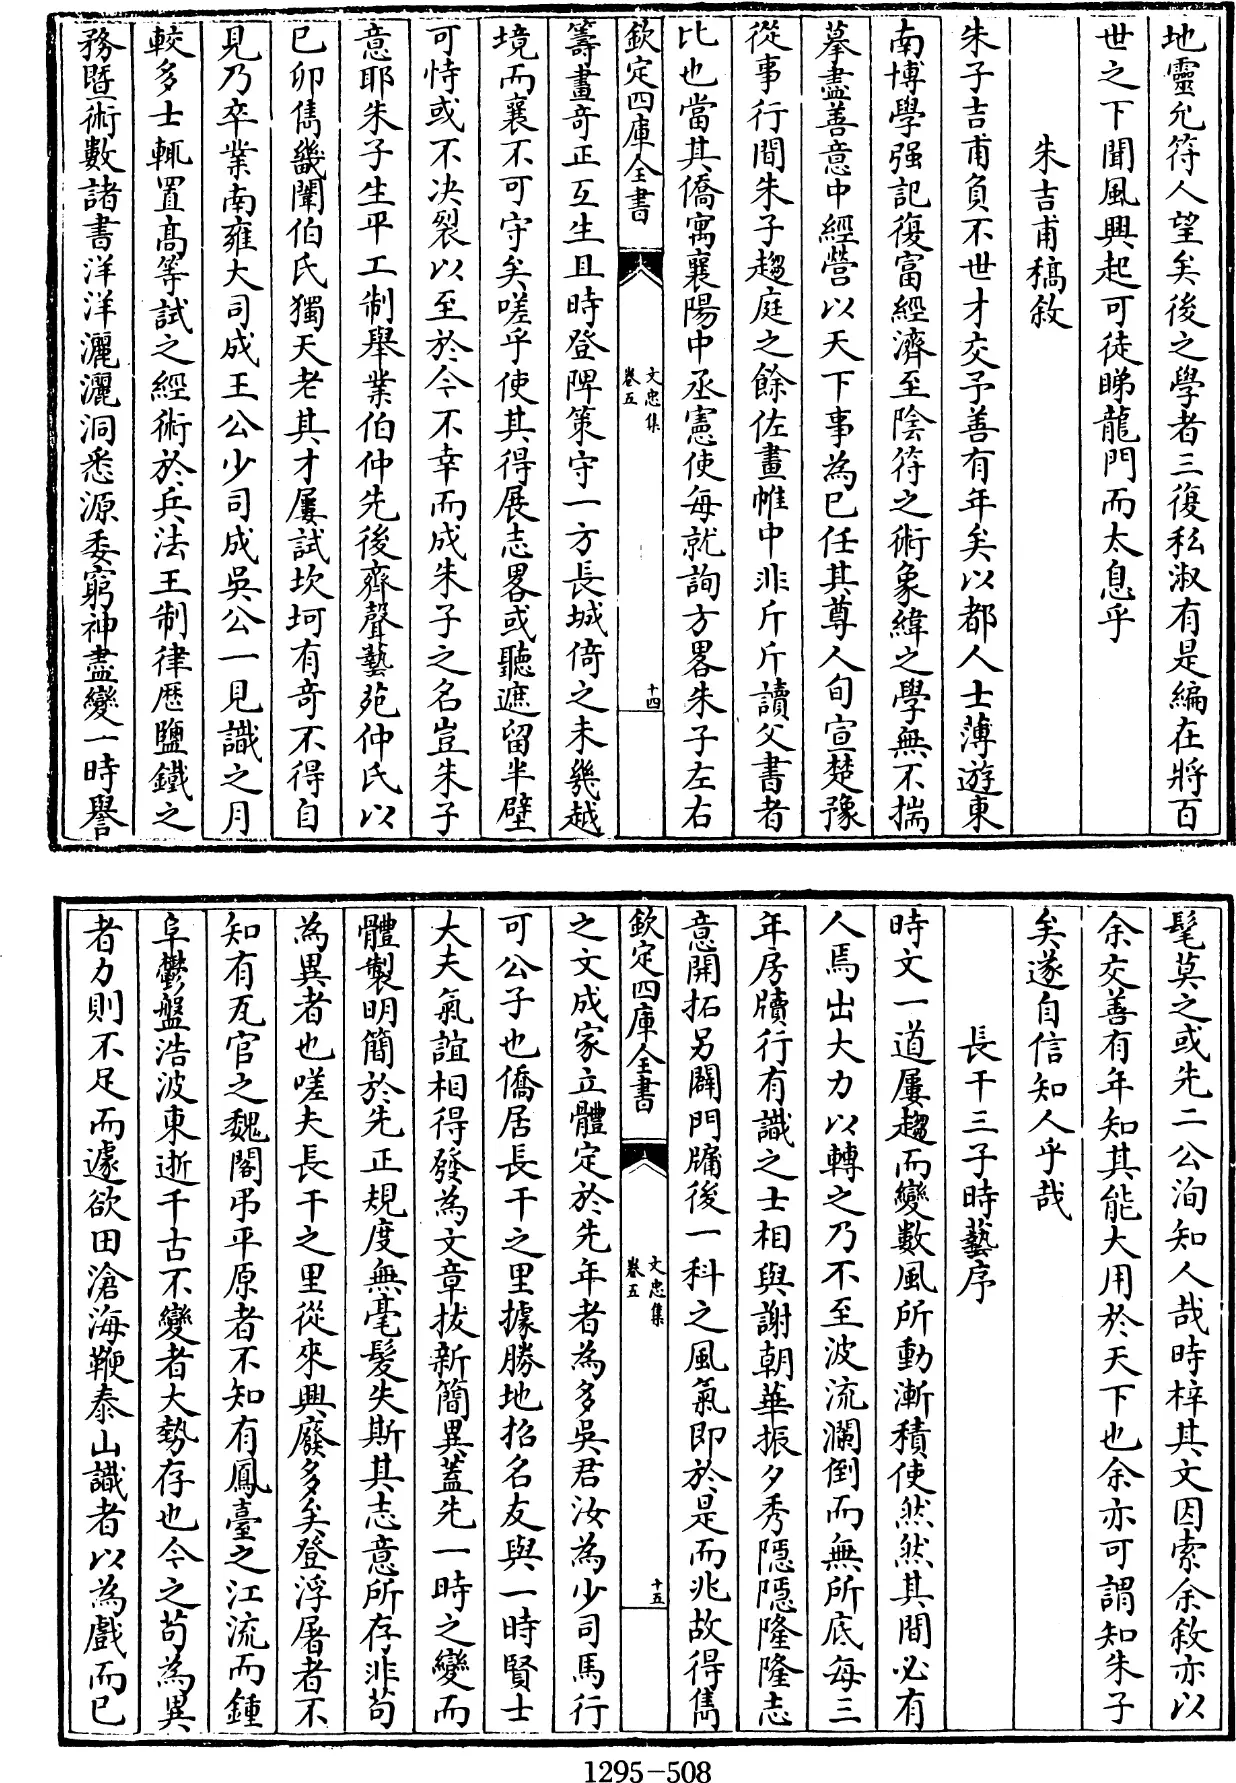 地靈允符人望矣後之學者三復私淑有是編在將百
世之下聞風興起可徒睇龍門而太息乎
朱吉甫稿敘
朱子吉甫負不世才交予善有年矣以都人士薄遊東
南博學强記復富經濟至陰符之術象緯之學無不揣
摹盡善意中經營以天下事為已任其尊人旬宣楚豫
從事行間朱子趨庭之餘佐畫帷中非斤斤讀父書者
比也當其僑寓襄陽中丞憲使每就詢方畧朱子左右
欽定四庫全書
文忠集
卷五
十四
籌畫奇正互生且時登陴策守一方長城倚之未幾越
境而襄不可守矣嗟乎使其得展志畧或聽遮留半壁
可恃或不决裂以至於今不幸而成朱子之名豈朱子
意耶朱子生平工制舉業伯仲先後齊聲藝苑仲氏以
已卯雋畿闈伯氏獨天老其才屢試坎坷有奇不得自
見乃卒業南雍大司成王公少司成吳公一見識之月
較多士輒置高等試之經術於兵法王制律歴鹽鐵之
務暨術數諸書洋洋灑灑洞悉源委窮神盡變一時譽
髦莫之或先二公洵知人哉時梓其文因索余敘亦以
余交善有年知其能大用於天下也余亦可謂知朱子
矣遂自信知人乎哉
長干三子時藝序
時文一道屢趨而變數風所動漸積使然然其間必有
人焉出大力以轉之乃不至波流瀾倒而無所底每三
年房牘行有識之士相與謝朝華振夕秀隱隱隆隆志
意開拓另闢門牗後一科之風氣即於是而兆故得雋
欽定四庫全書
文忠集
卷五
十五
之文成家立體定於先年者為多吳君汝為少司馬行
可公子也僑居長干之里據勝地招名友與一時賢士
大夫氣誼相得發為文章拔新簡異蓋先一時之變而
體製明簡於先正規度無毫髮失斯其志意所存非茍
為異者也嗟夫長干之里從來興廢多矣登浮屠者不
知有瓦官之魏閣弔平原者不知有鳳臺之江流而鍾
阜鬱盤浩波東逝千古不變者大勢存也今之茍為異
者力則不足而遽欲田滄海鞭泰山識者以為戲而已
1295-508